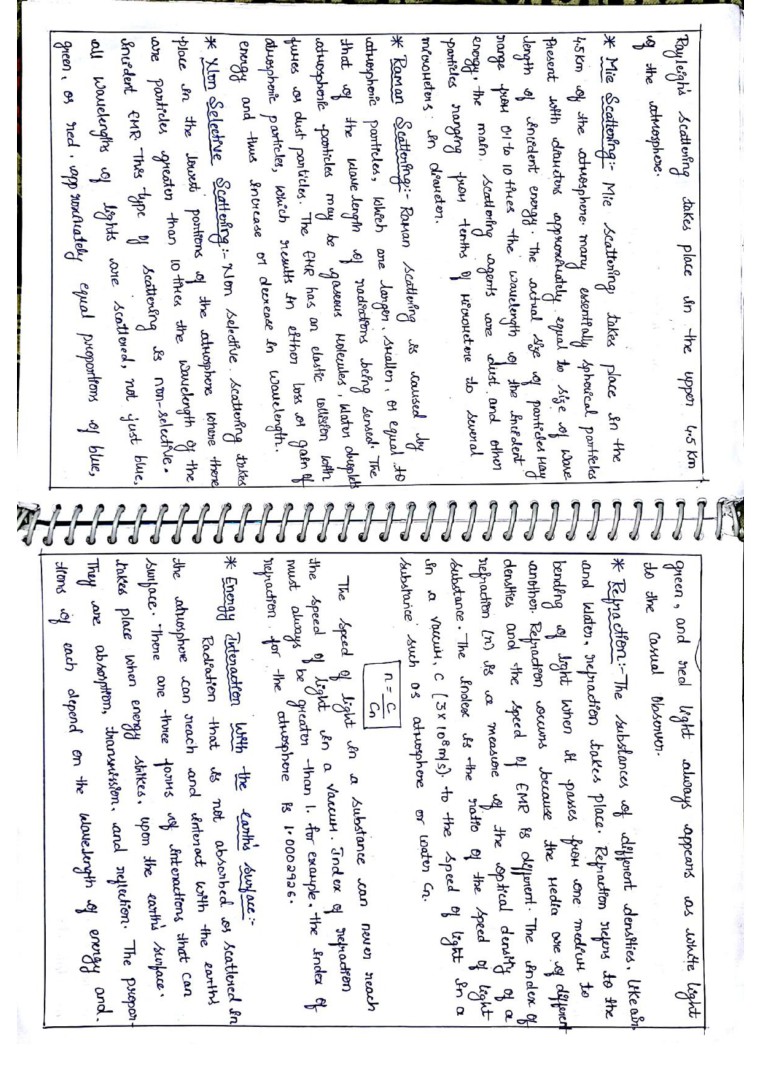 Rayleigh's scattering takes place in the upper 4.5 km
of the atmosphere.
* Mie Scattering:- Mie scattering takes place in the
4.5 km of the atmosphere. many essentially spherical particles
Present with diameters approximately equal to size of wave
length of incident energy. The actual size of particles may
range from 0.1 to 10 times the wavelength of the incident
energy. the main scattering agents are dust and other
particles ranging from tenths of micrometere to several
micrometers in diameter.
* Raman Scattering:- Raman scattering is caused by
atmospheric particles, which are larger, smaller, or equal to
that of the wave length of radiations being sensed. The
atmospheric particles may be gaseous molecules, water droplets
fumes or dust particles. The EMR has an elastic collision with
atmospheric particles, which results in either loss or gain of
energy and thus increase or decrease in wavelength.
* Non Selective Scattering:- Non selective scattering takes
place in the lowest portions of the atmosphere where there
are particles greater than 10 times the wavelength of the
incident EMR. This type of scattering is non-selective.
all wavelengths of lights are scattered, not just blue,
green, or red. approximately equal proportions of blue,
green, and red light always appears as white light
to the casual observer.
* Refraction:- The substances of different densities, like air
and water, refraction takes place. Refraction refers to the
bending of light when it passes from one medium to
another. Refraction occurs because the media are of different
densities and the speed of EMR is different. The index of
refraction (n) is a measure of the optical density of a
substance. The index is the ratio of the speed of light
in a vaccum, c (3x10⁸m/s). to the speed of light in a
substance such as atmosphere or water Cn.
n = C/Cn
The speed of light in a substance can never reach
the speed of light in a vaccum. Index of refraction
must always be greater than 1. for example, the index of
refraction for the atmosphere is 1.0002926.
* Energy Interaction with the earth's surface:-
Radiation that is not absorbed or scattered in
the atmosphere can reach and interact with the earth's
surface. there are three forms of interactions that can
takes place when energy strikes, upon the earth's surface.
They are absorption, transmission, and reflection. The propor-
tions of each depend on the wavelength of energy and.